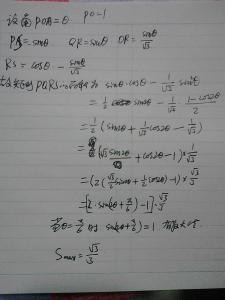 设角POA=θ PO=1
PS=sinθ QR=sinθ OR=sinθ/√3
RS=cosθ-sinθ/√3
PQRS 面积为 sinθ·cosθ-1/√3 sin²θ
=1/2 sin2θ-1/√3·(1-cos2θ)/2
=1/2(sin2θ+1/√3 cos2θ-1/√3)
=1/2(√3 sin2θ+cos2θ-1)×1/√3
=(2(√3/2 sin2θ+1/2 cos2θ)-1)×√3/
=[2·sin(2θ+π/6)-1]·√3/
当θ=π/6时 sin(2θ+π/6)=1 有最大值
Smax=√3/